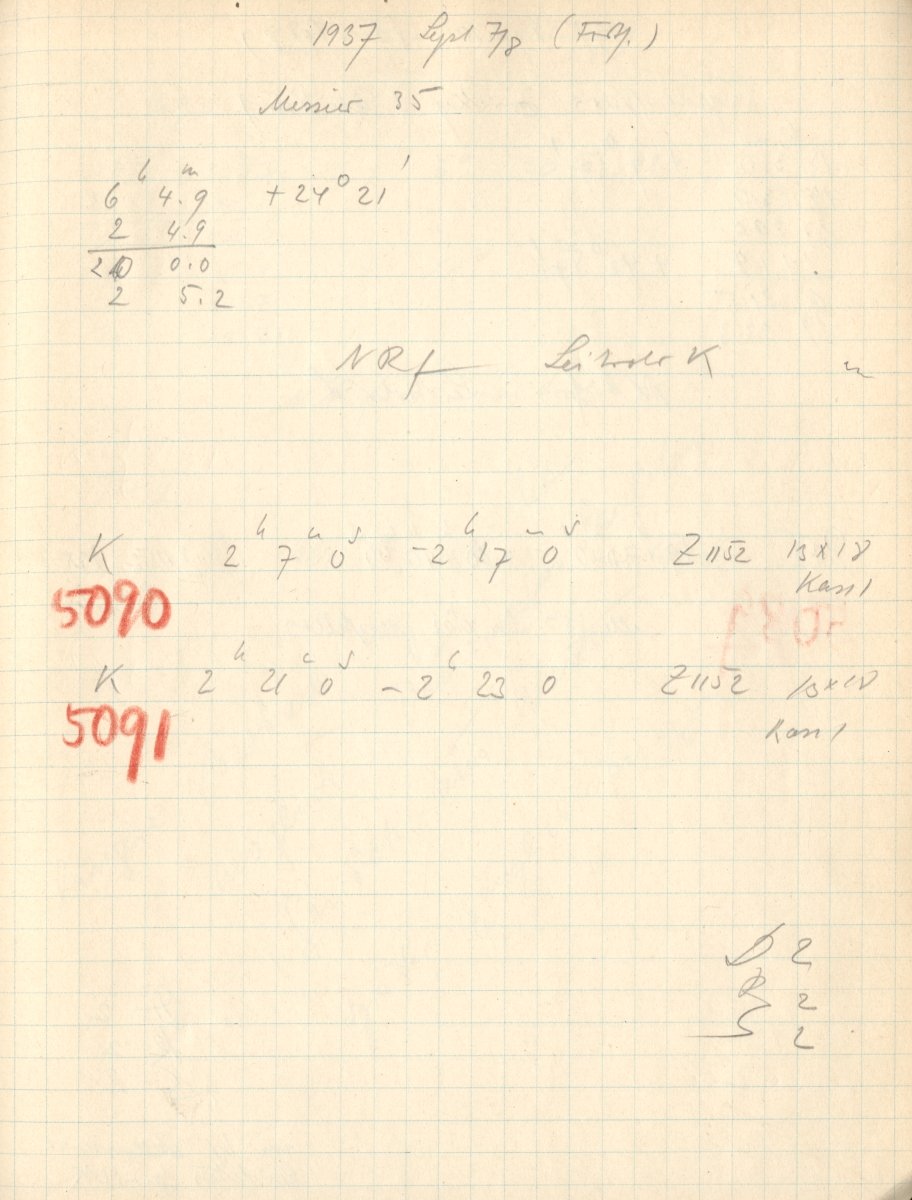 1937 Sept 7/8 (Forts.)
Messier 35
6ʰ 4.9ᵐ +24° 21′
2 4.9
20 0.0
2 5.2
NRf K
K 2ʰ 7ᵐ 0ˢ – 2ʰ 17ᵐ 0ˢ Z 1152 13×18
Kass 1
5090
K 2ʰ 21ᵐ 0ˢ – 2ʰ 23 0 Z 1152 13×18
Kass 1
5091
D 2
R 2
S 2